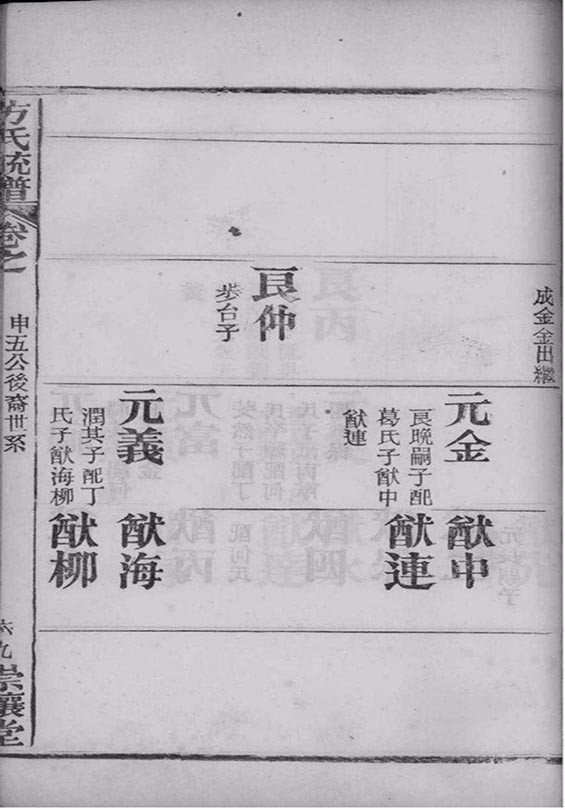 成金金出繼
良仲
步台子
元金
良晩嗣子配
葛氏子猷中
猷連
元義
潤其子配丁
氏子猷海柳
猷中
猷連
猷海
猷柳
方氏統譜
卷之
申五公後裔世系
六九
崇讓堂